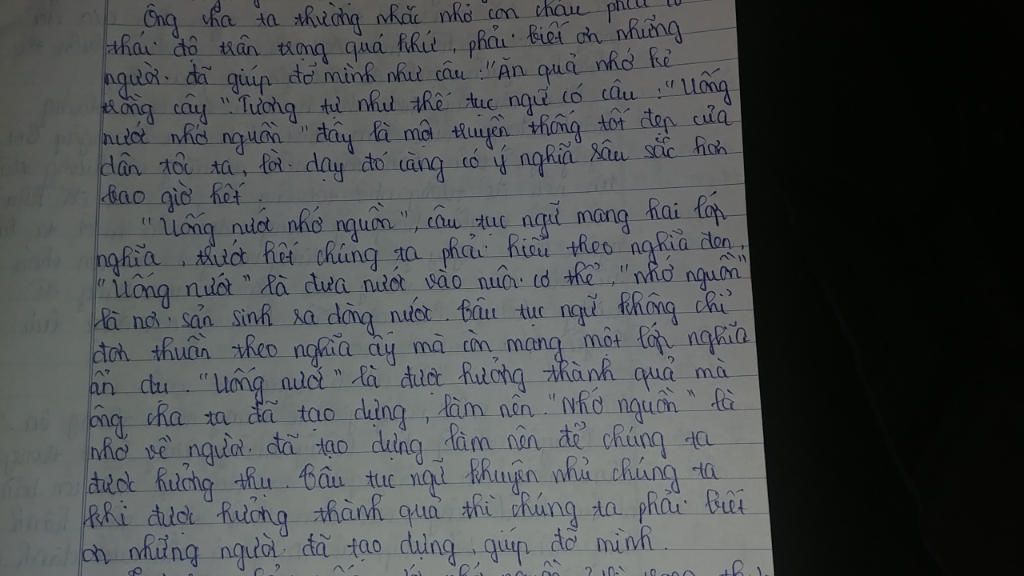 Ông cha ta thường nhắc nhở con cháu phải có
thái độ trân trọng quá khứ, phải biết ơn những
người đã giúp đỡ mình như câu: "Ăn quả nhớ kẻ
trồng cây" Tương tự như thế tục ngữ có câu: "Uống
nước nhớ nguồn" đây là một truyền thống tốt đẹp của
dân tộc ta, lời dạy đó càng có ý nghĩa sâu sắc hơn
bao giờ hết.
"Uống nước nhớ nguồn", câu tục ngữ mang hai lớp
nghĩa, trước hết chúng ta phải hiểu theo nghĩa đen,
"Uống nước" là đưa nước vào nuôi cơ thể, "nhớ nguồn"
là nơi sản sinh ra dòng nước. Câu tục ngữ không chỉ
đơn thuần theo nghĩa ấy mà còn mang một lớp nghĩa
ẩn dụ. "Uống nước" là được hưởng thành quả mà
ông cha ta đã tạo dựng, làm nên. "Nhớ nguồn" là
nhớ về người đã tạo dựng làm nên để chúng ta
được hưởng thụ. Câu tục ngữ khuyên nhủ chúng ta
khi được hưởng thành quả thì chúng ta phải biết
ơn những người đã tạo dựng, giúp đỡ mình.